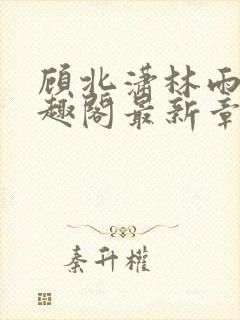 顾北潇林雨
趣阁最新章
秦升權